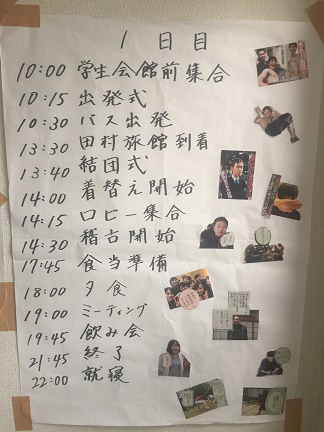 1日目
10:00 学生会館前集合
10:15 出発式
10:30 バス出発
13:30 田村旅館到着
13:40 結団式
14:00 着替え開始
14:15 ロビー集合
14:30 稽古開始
17:45 食当準備
18:00 夕食
19:00 ミーティング
19:45 飲み会
21:45 終了
22:00 就寝